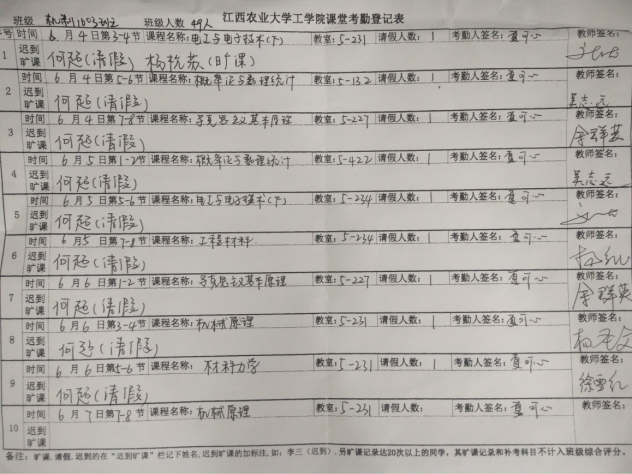 江西农业大学工学院课堂考勤登记表
班级 机制1603班 班级人数 49人
序号 时间 6月4日第3-4节 课程名称:电工与电子技术(下) 教室:5-231 请假人数:1 考勤人签名:夏可心 教师签名:
1 迟到 旷课 何超(请假) 杨杭 (旷课)
时间 6月4日第5-6节 课程名称:概率论与数理统计 教室:5-132 请假人数:1 考勤人签名:夏可心 教师签名:
2 迟到 旷课 何超(请假) 吴志远
时间 6月4日第7-8节 课程名称:马克思主义基本原理 教室:5-227 请假人数:1 考勤人签名:夏可心 教师签名:
3 迟到 旷课 何超(请假) 余群英
时间 6月5日第1-2节 课程名称:概率论与数理统计 教室:5-422 请假人数:1 考勤人签名:夏可心 教师签名:
4 迟到 旷课 何超(请假) 吴志远
时间 6月5日第5-6节 课程名称:电工与电子技术(下) 教室:5-234 请假人数:1 考勤人签名:夏可心 教师签名:
5 迟到 旷课 何超(请假)
时间 6月5日第7-8节 课程名称:工程材料 教室:5-234 请假人数:1 考勤人签名:夏可心 教师签名:
6 迟到 旷课 何超(请假)
时间 6月6日第1-2节 课程名称:马克思主义基本原理 教室:5-227 请假人数:1 考勤人签名:夏可心 教师签名:
7 迟到 旷课 何超(请假) 余群英
时间 6月6日第3-4节 课程名称:机械原理 教室:5-231 请假人数:1 考勤人签名:夏可心 教师签名:
8 迟到 旷课 何超(请假)
时间 6月6日第5-6节 课程名称:材料力学 教室:5-231 请假人数:1 考勤人签名:夏可心 教师签名:
9 迟到 旷课 何超(请假) 徐雪红
时间 6月7日第7-8节 课程名称:机械原理 教室:5-231 请假人数: 考勤人签名:夏可心 教师签名:
10 迟到 旷课
备注:旷课.请假.迟到的在“迟到旷课”栏记下姓名,迟到旷课的加标注,如:李三(迟到).另旷课记录达20次以上的同学,其旷课记录和补考科目不计入班级综合评分。